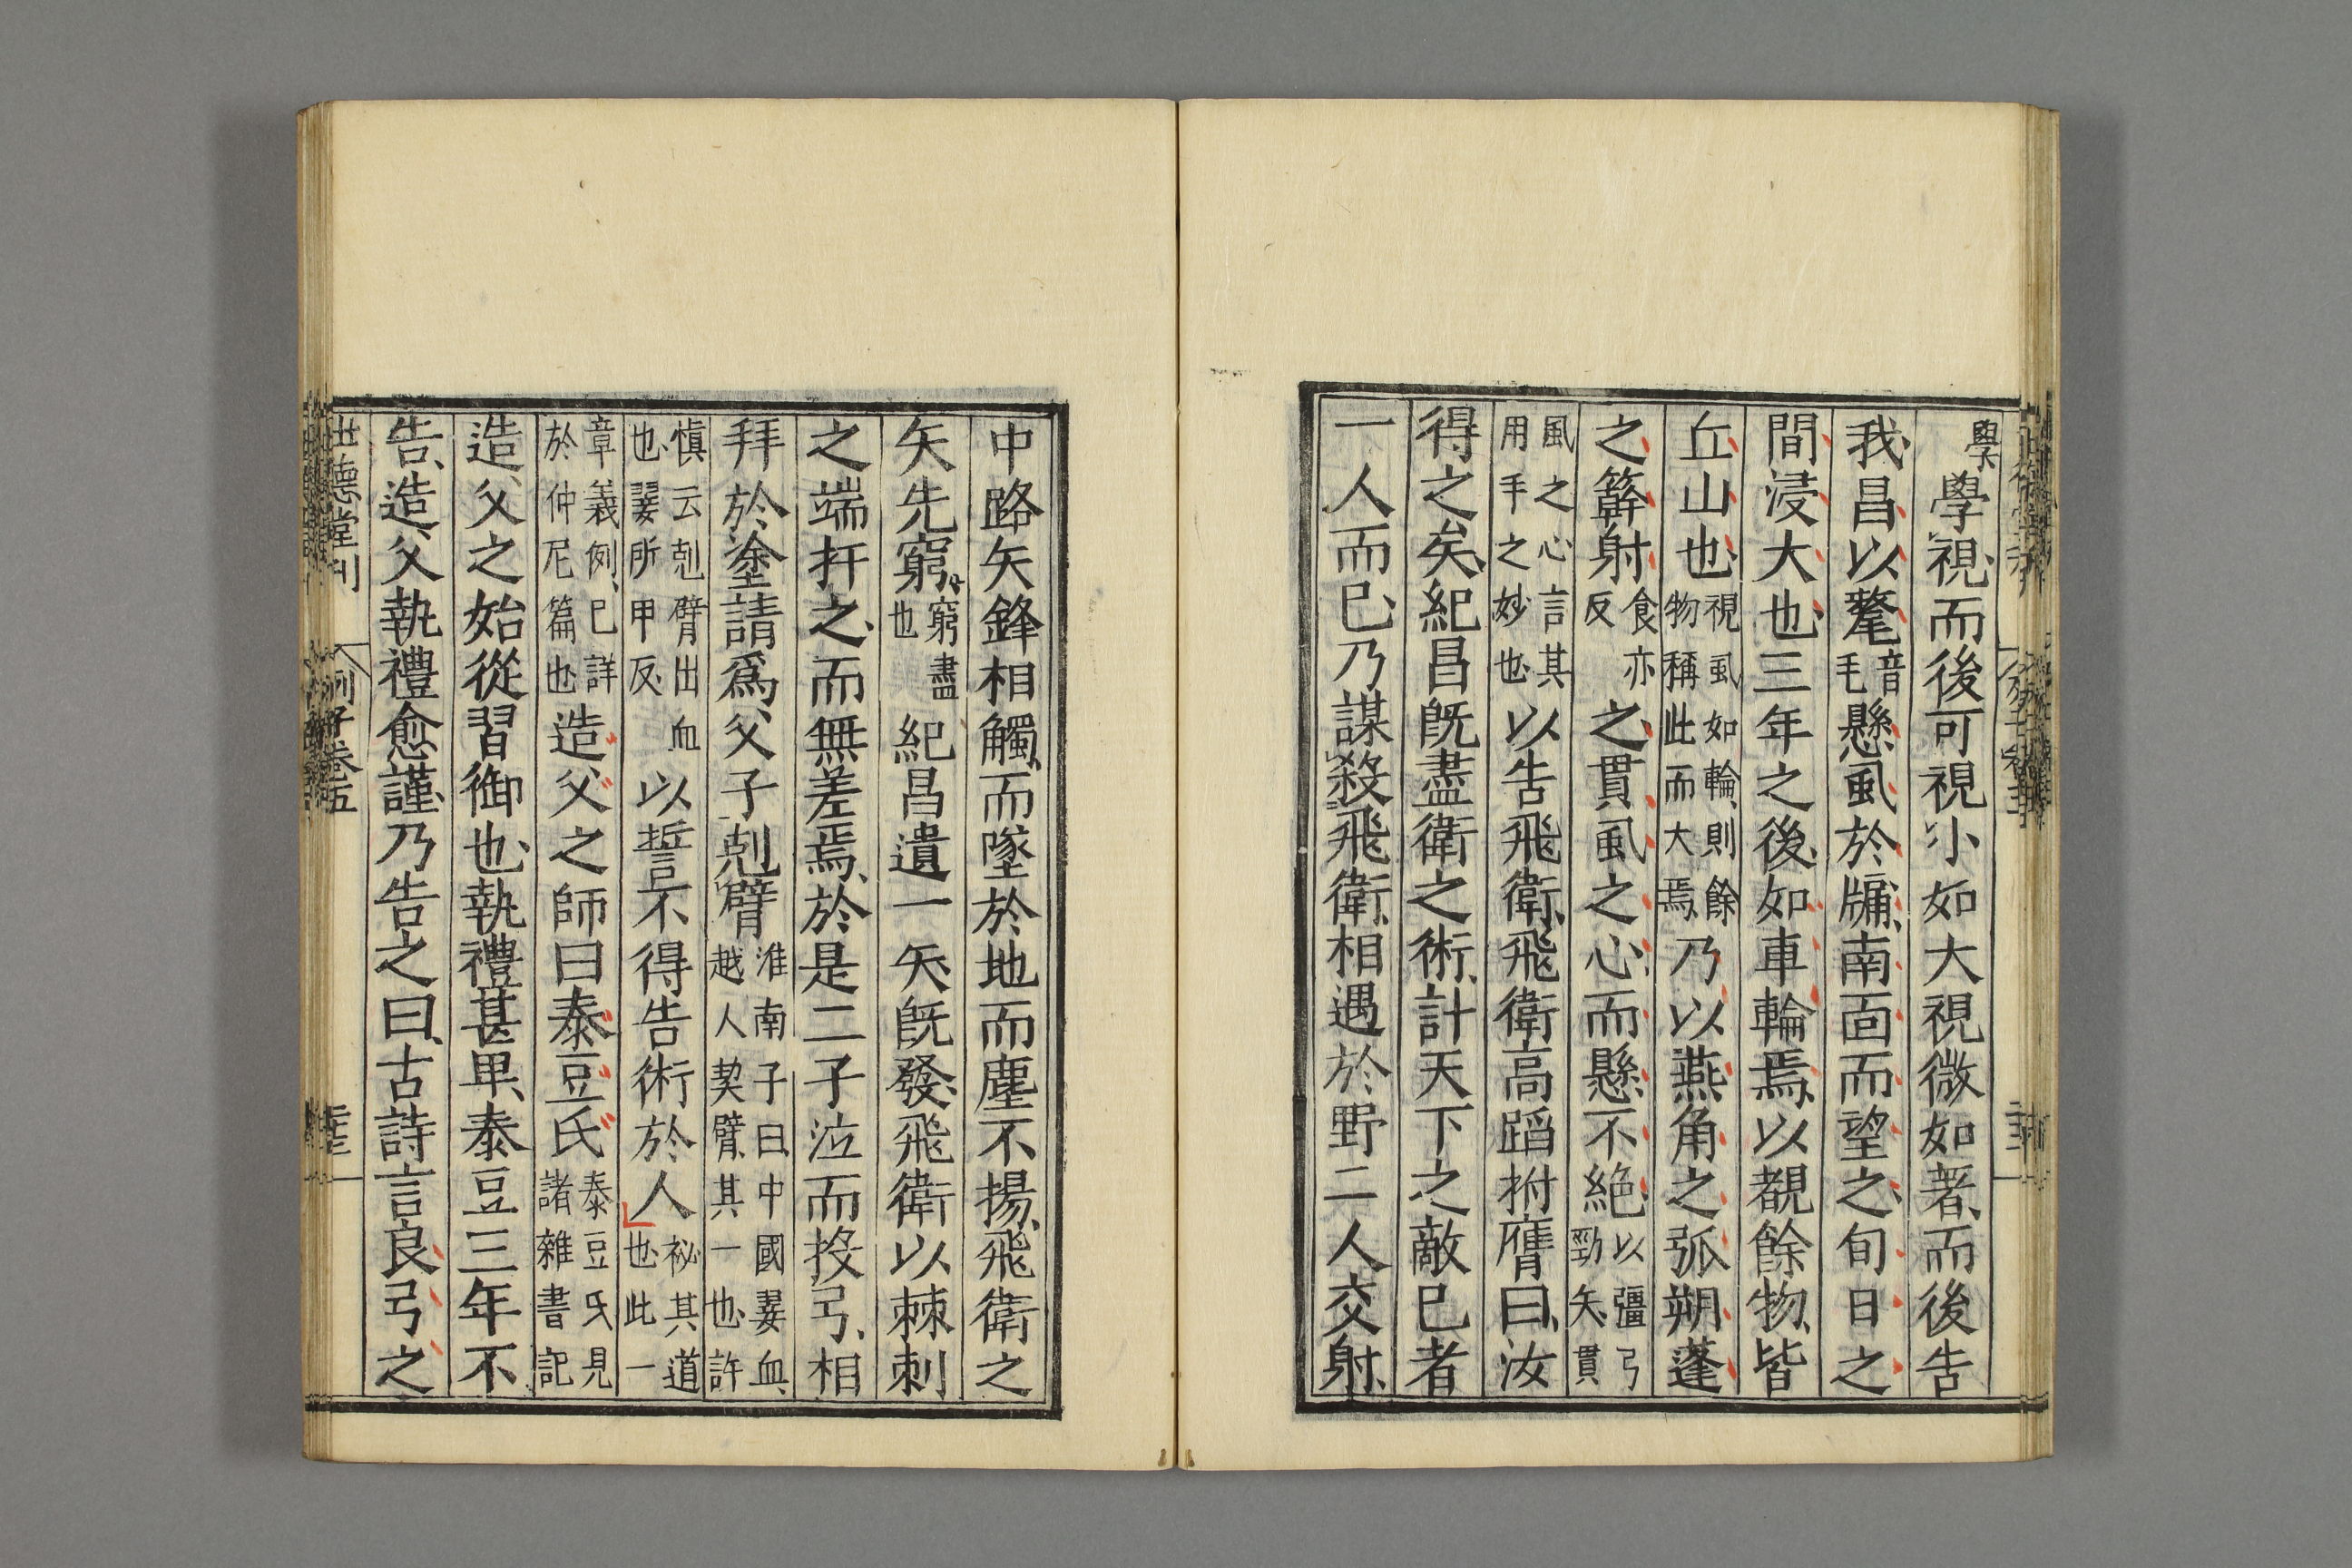 學學視而後可視小如大視微如著而後告
我昌以氂音毛懸虱於牖南面而望之旬日之
間浸大也三年之後如車輪焉以覩餘物皆
丘山也視虱如輪則餘物稱此而大焉乃以燕角之弧朔蓬
之簳射食亦反之貫虱之心而懸不絶以彊弓勁矢貫
風之心言其用手之妙也以告飛衛飛衛高蹈拊膺曰汝
得之矣紀昌旣盡衛之術計天下之敵己者
一人而已乃謀殺飛衛相遇於野二人交射
中路矢鋒相觸而墜於地而塵不揚飛衛之
矢先窮窮盡也紀昌遺一矢旣發飛衛以棘刺
之端扞之而無差焉於是二子泣而投弓相
拜於塗請爲父子剋臂淮南子曰中國㰱血越人契臂其一也許
愼云剋臂出血也㰱所甲反以誓不得告術於人祕其道也此一
章義例已詳於仲尼篇也造父之師曰泰豆氏泰豆氏見諸雜書記
造父之始從習御也執禮甚卑泰豆三年不
告造父執禮愈謹乃告之曰古詩言良弓之
世德堂刊
列子卷五